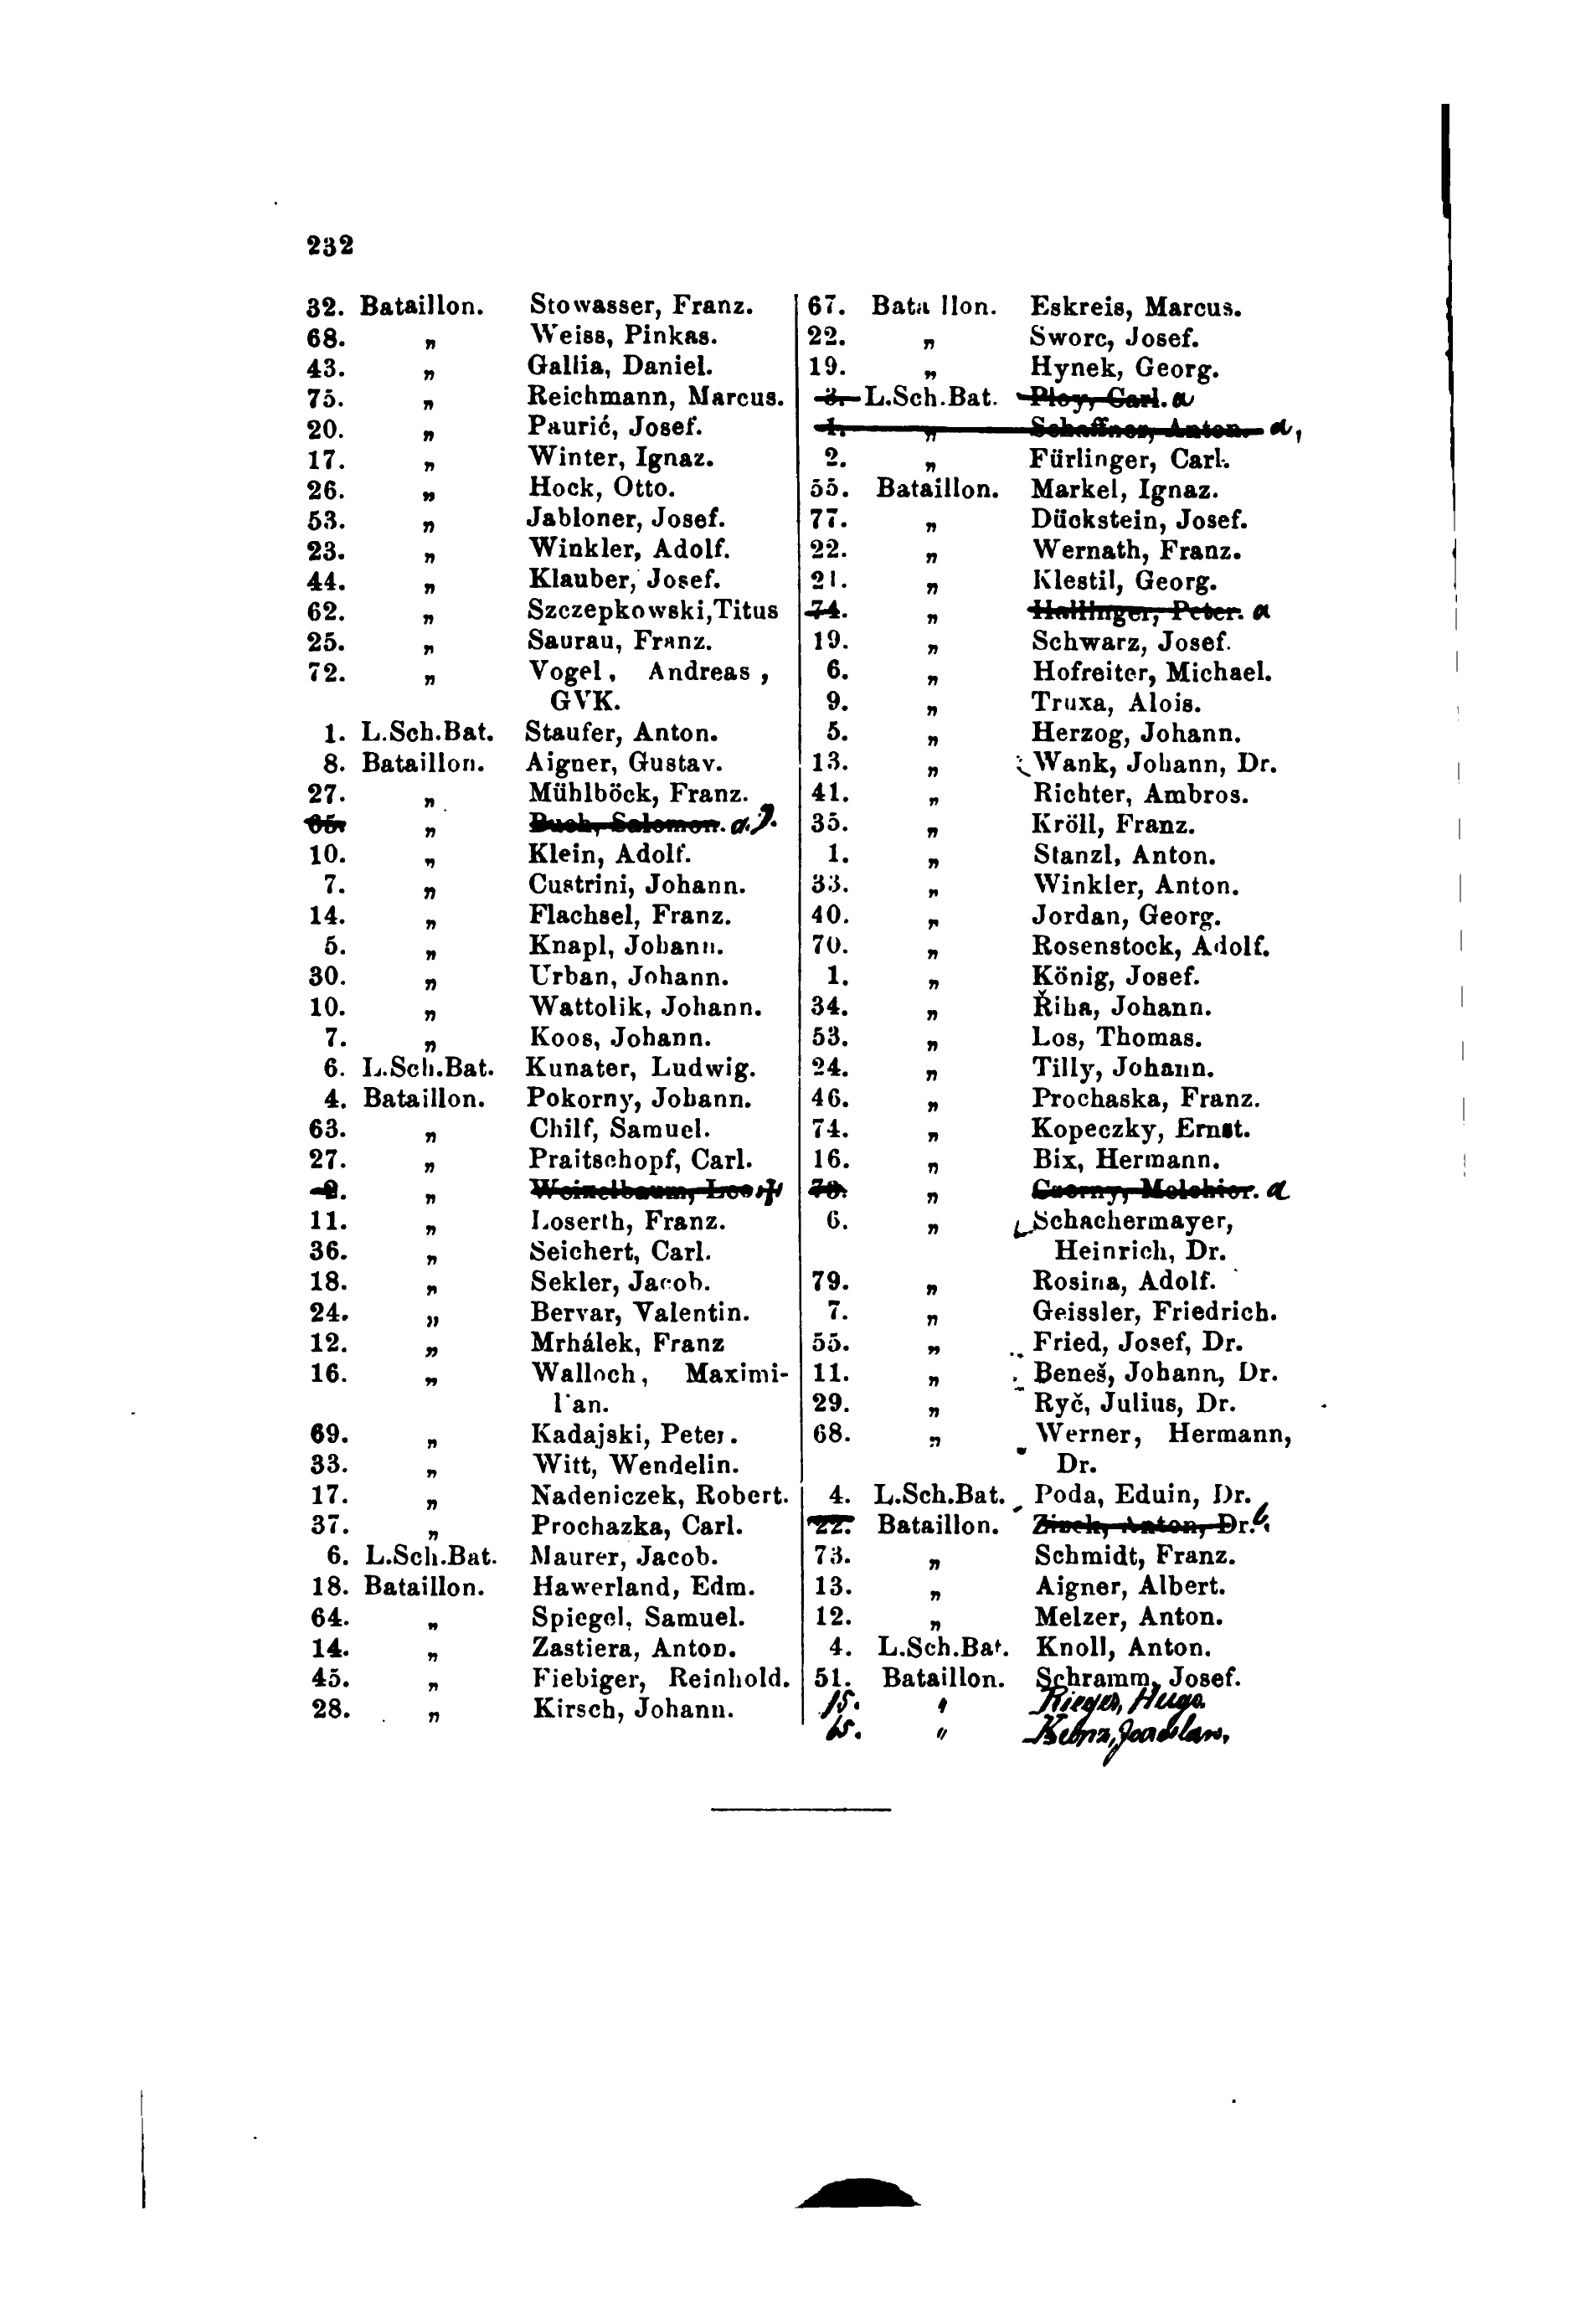 232
32. Bataillon. Stowasser, Franz.
68. „ Weiss, Pinkas.
43. „ Gallia, Daniel.
75. „ Reichmann, Marcus.
20. „ Paurić, Josef.
17. „ Winter, Ignaz.
26. „ Hock, Otto.
53. „ Jabloner, Josef.
23. „ Winkler, Adolf.
44. „ Klauber, Josef.
62. „ Szczepkowski,Titus
25. „ Saurau, Franz.
72. „ Vogel, Andreas,
GVK.
1. L.Sch.Bat. Staufer, Anton.
8. Bataillon. Aigner, Gustav.
27. „ Mühlböck, Franz.
65. „ Buch, Salomon.
10. „ Klein, Adolf.
7. „ Custrini, Johann.
14. „ Flachsel, Franz.
5. „ Knapl, Johann.
30. „ Urban, Johann.
10. „ Wattolik, Johann.
7. „ Koos, Johann.
6. L.Sch.Bat. Kunater, Ludwig.
4. Bataillon. Pokorny, Johann.
63. „ Chilf, Samuel.
27. „ Praitschopf, Carl.
2. „ Weizelbaum, Leo
11. „ Loserth, Franz.
36. „ Seichert, Carl.
18. „ Sekler, Jacob.
24. „ Bervar, Valentin.
12. „ Mrhálek, Franz
16. „ Walloch, Maximi-
lian.
69. „ Kadajski, Peter.
33. „ Witt, Wendelin.
17. „ Nadeniczek, Robert.
37. „ Prochazka, Carl.
6. L.Sch.Bat. Maurer, Jacob.
18. Bataillon. Hawerland, Edm.
64. „ Spiegel, Samuel.
14. „ Zastiera, Anton.
45. „ Fiebiger, Reinhold.
28. „ Kirsch, Johann.
67. Bataillon. Eskreis, Marcus.
22. „ Sworc, Josef.
19. „ Hynek, Georg.
3. L.Sch.Bat. Ploy, Carl. a
1. „ Schaffner, Anton. a,
2. „ Fürlinger, Carl.
55. Bataillon. Markel, Ignaz.
77. „ Dückstein, Josef.
22. „ Wernath, Franz.
21. „ Klestil, Georg.
74. „ Hallinger, Peter. a
19. „ Schwarz, Josef.
6. „ Hofreiter, Michael.
9. „ Truxa, Alois.
5. „ Herzog, Johann.
13. „ Wank, Johann, Dr.
41. „ Richter, Ambros.
35. „ Kröll, Franz.
1. „ Stanzl, Anton.
33. „ Winkler, Anton.
40. „ Jordan, Georg.
70. „ Rosenstock, Adolf.
1. „ König, Josef.
34. „ Řiha, Johann.
53. „ Los, Thomas.
24. „ Tilly, Johann.
46. „ Prochaska, Franz.
74. „ Kopeczky, Ernst.
16. „ Bix, Hermann.
„ Czerny, Melchior. a
6. „ Schachermayer,
Heinrich, Dr.
79. „ Rosina, Adolf.
7. „ Geissler, Friedrich.
55. „ Fried, Josef, Dr.
11. „ Beneš, Johann, Dr.
29. „ Ryč, Julius, Dr.
68. „ Werner, Hermann,
Dr.
4. L.Sch.Bat. Poda, Eduin, Dr.
22. Bataillon. Anton, Dr.
73. „ Schmidt, Franz.
13. „ Aigner, Albert.
12. „ Melzer, Anton.
4. L.Sch.Bat. Knoll, Anton.
51. Bataillon. Schramm, Josef.
15. " Rieger, Hugo.
65. "